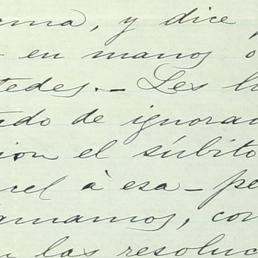 rma, y dice
en manos o
tedes. - Les h
ado de ignoran
sion el súbito
cel à esa - pe
amamos, con
las resoluc